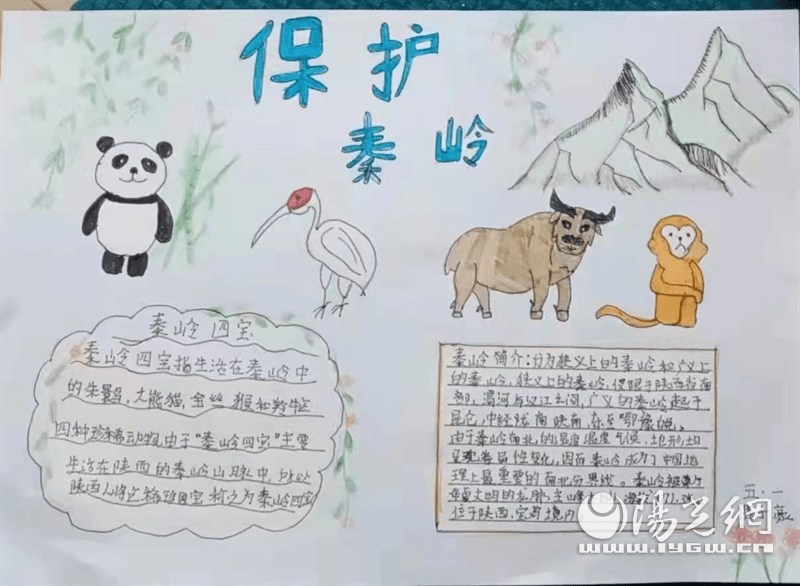 保护
秦岭
秦岭四宝
秦岭四宝指生活在秦岭中
的朱鹮、大熊猫、金丝猴和羚牛这
四种珍稀动物,由于"秦岭四宝"主要
生活在陕西的秦岭山脉中,所以
陕西人将之称为国宝 称之为秦岭四宝
秦岭简介:分为狭义上的秦岭和广义上
的秦岭,狭义上的秦岭,仅限于陕西省南
部,渭河与汉江之间,广义的秦岭起于
昆仑,中经陇南 陕南,东至鄂豫皖。
由于秦岭南北的湿度温度气候,地形均
呈现差异性变化,因而秦岭成为了中国地
理上最重要的南北分界线。秦岭被尊为
华夏文明的龙脉,主峰太白山海
位于陕西,宝鸡境内
五、一
陽光網
www.iygw.cn